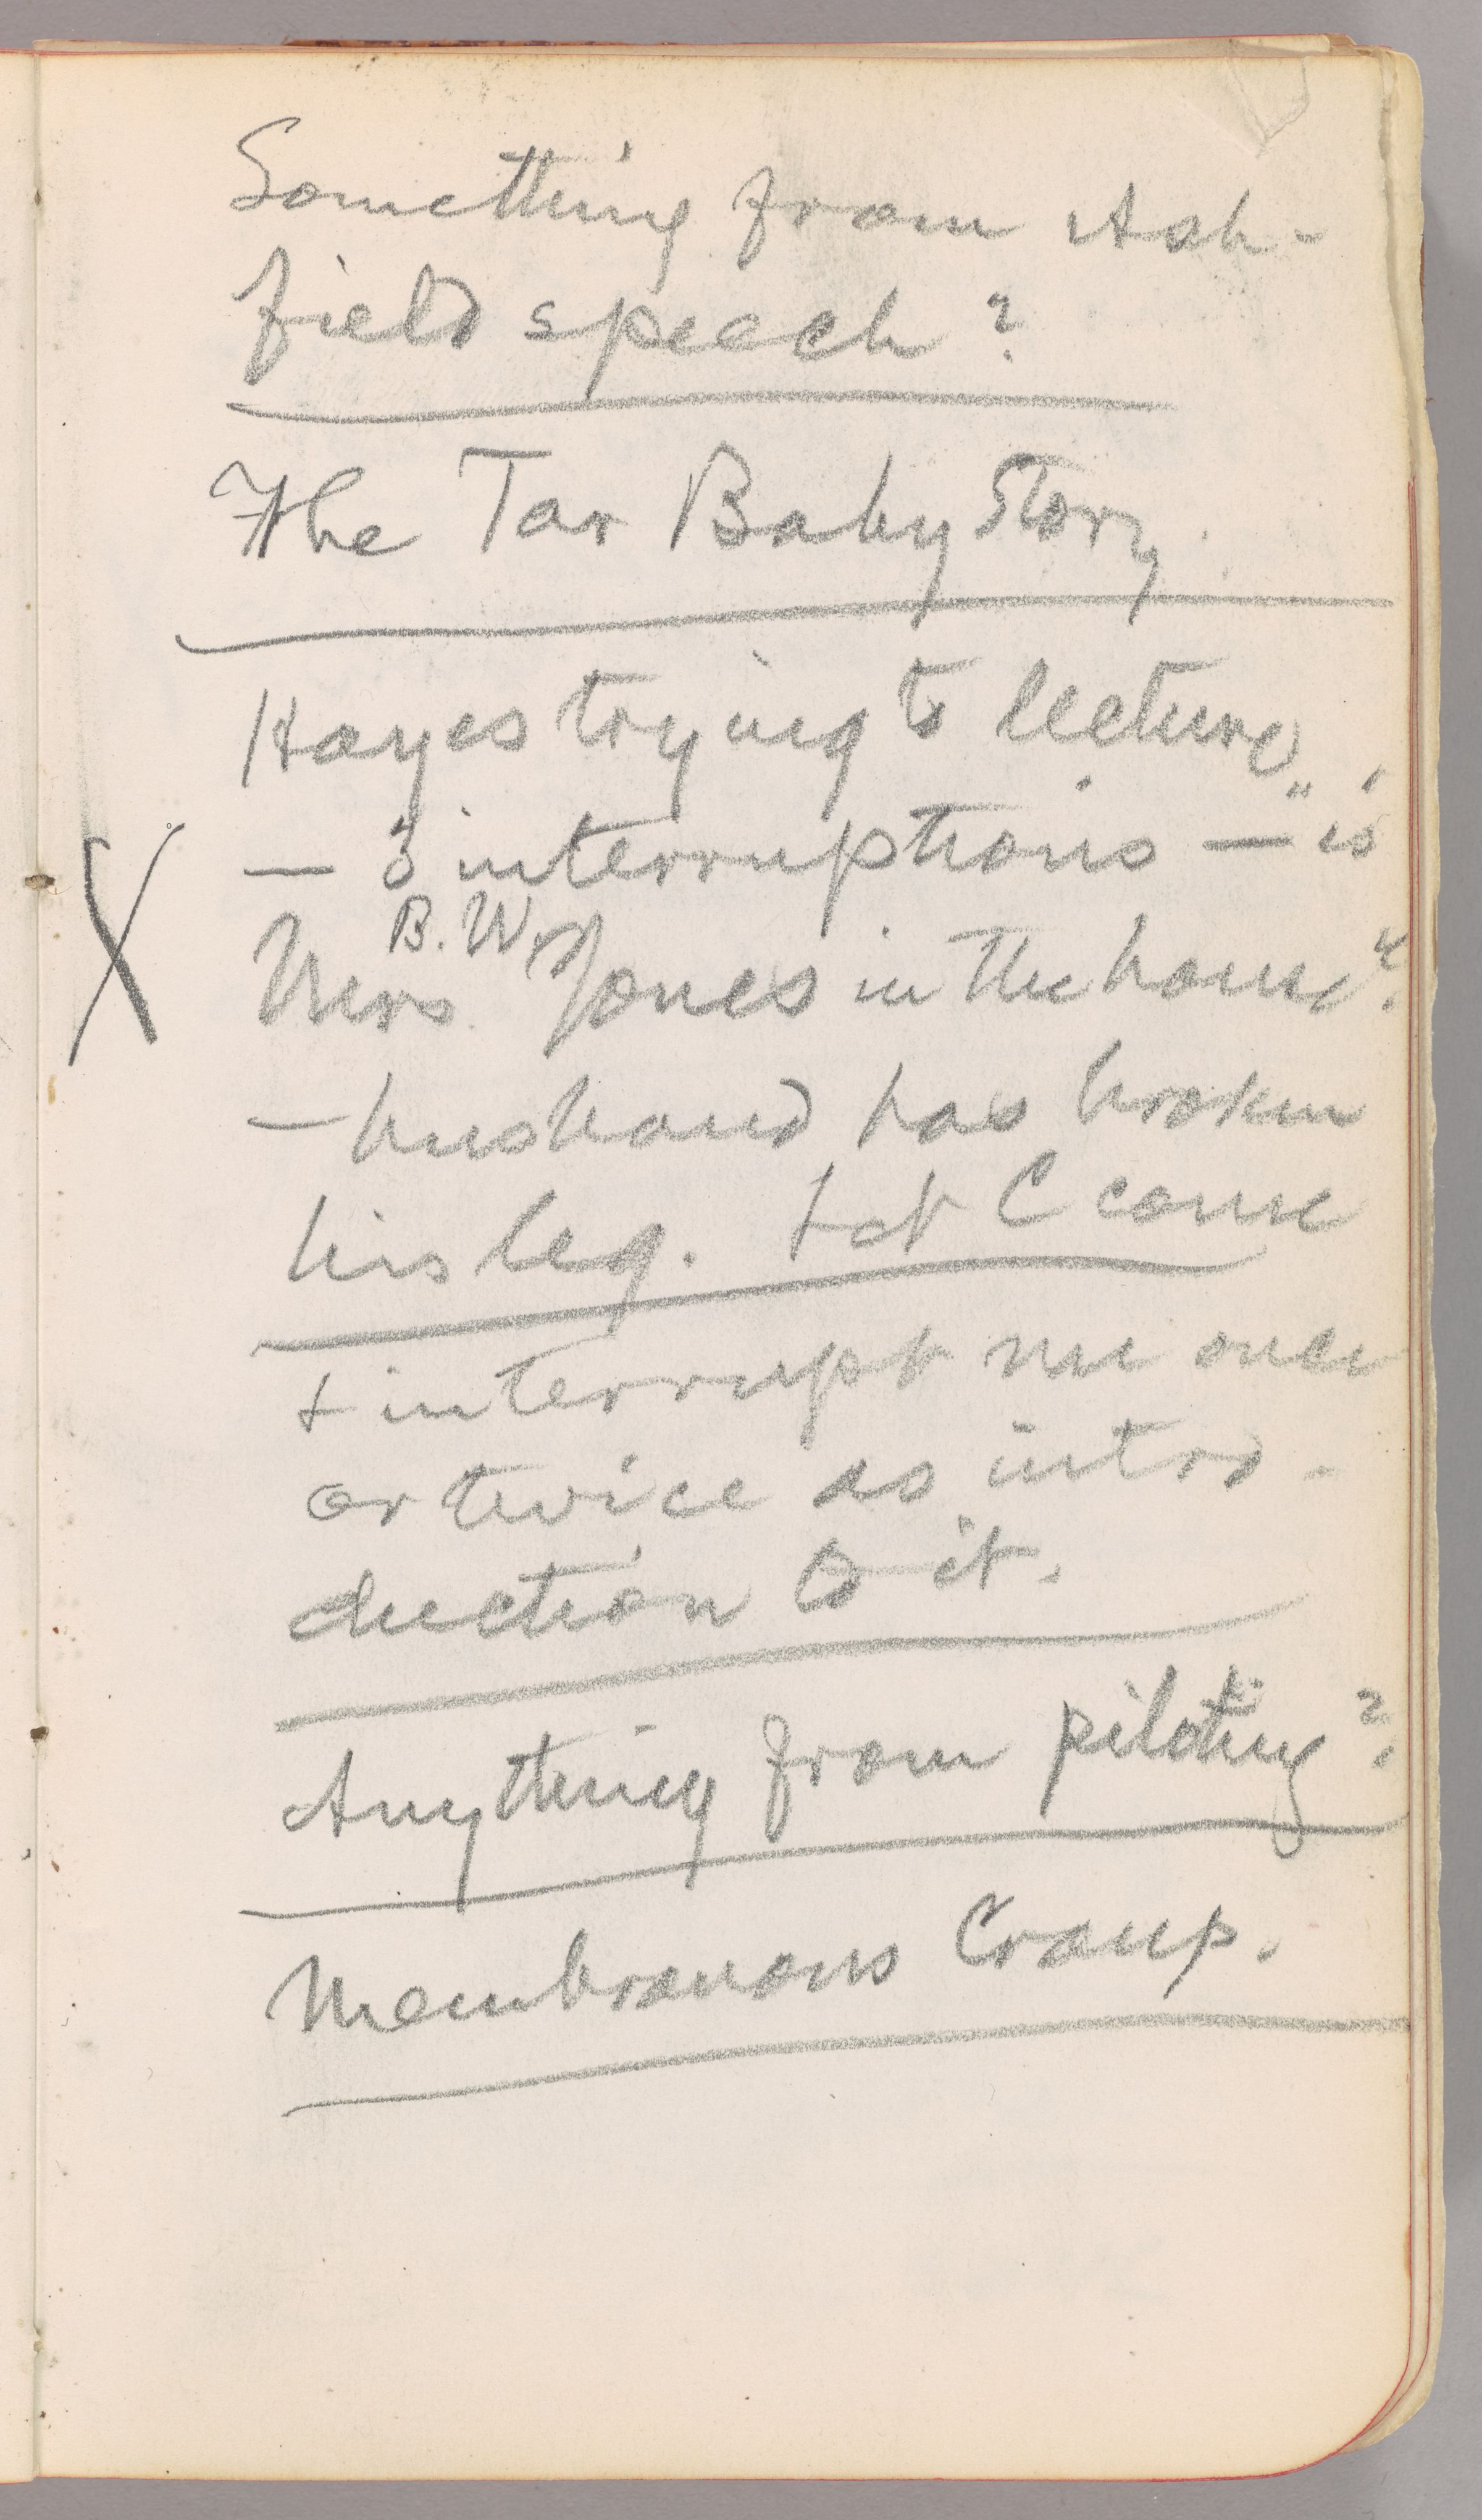 Something from Ash-
field speech?
The Tar Baby Story.
Hayes trying to lecture,
— 3 interruptions — "is
B. W.
Mrs. Jones in the house?"
— husband has broken
his leg. Let C come
+ interrupt me once
or twice as intro-
duction to it.
Anything from piloting?
Membranous Croup.
X